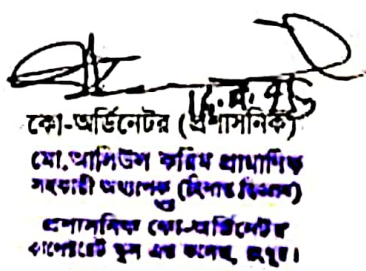 কো-অর্ডিনেটর (প্রশাসনিক)
মো. করিম প্রামাণিক
সহকারী অধ্যাপক (হিসাব বিজ্ঞান)
প্রশাসনিক কো-অর্ডিনেটর
কালেক্টরেট স্কুল এন্ড কলেজ, রংপুর।